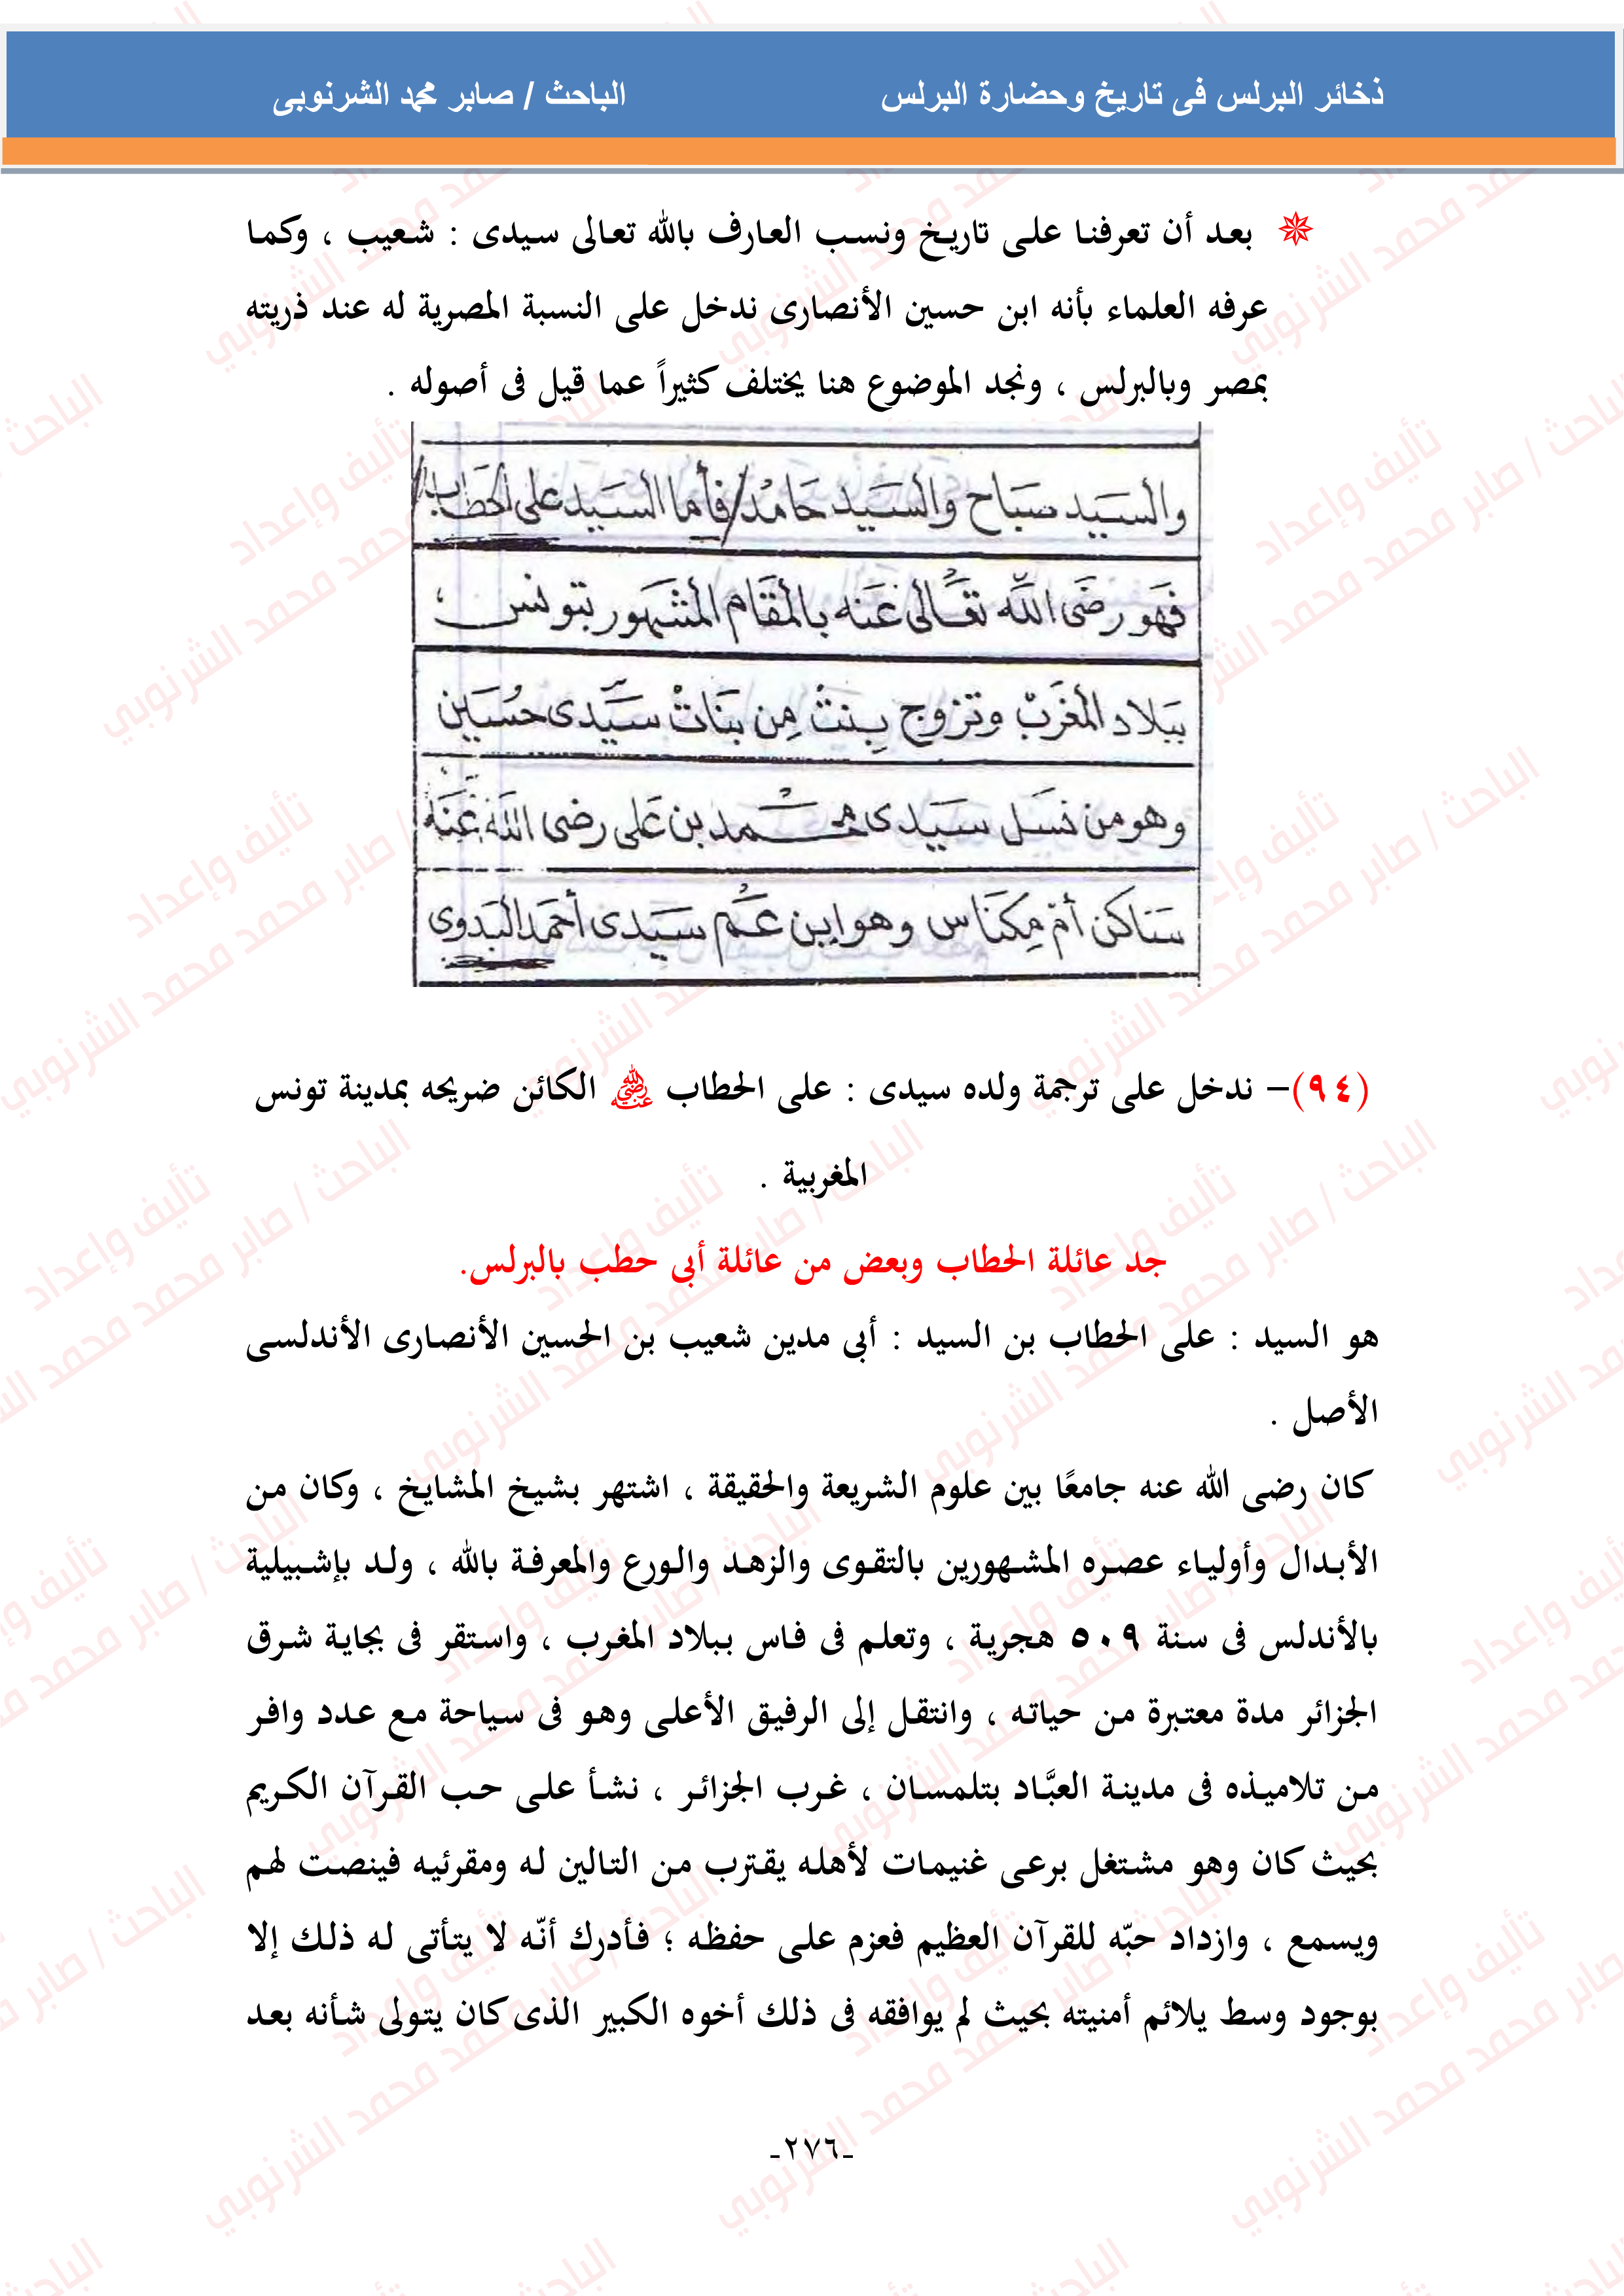 ذخائر البرلس فى تاريخ وحضارة البرلس الباحث / صابر محمد الشرنوبى
بعد أن تعرفنا على تاريخ ونسب العارف بالله تعالى سيدى : شعيب ، وكما
عرفه العلماء بأنه ابن حسين الأنصارى ندخل على النسبة المصرية له عند ذريته
بمصر وبالبرلس ، ونجد الموضوع هنا يختلف كثيراً عما قيل فى أصوله .
والسيد صباح والسيد حامد/ فأما السيد على الحطاب/
فهو رضى الله تعالى عنه بالمقام المشهور بتونس ،
ببلاد المغرب وتزوج بنت من بنات سيدى حسين
وهو من نسل سيدى محمد بن على رضى الله عنه
ساكن أم مكناس وهو ابن عم سيدى أحمد البدوى
(٩٤)– ندخل على ترجمة ولده سيدى : على الحطاب رضي الله عنه الكائن ضريحه بمدينة تونس
المغربية .
جد عائلة الحطاب وبعض من عائلة أبى حطب بالبرلس.
هو السيد : على الحطاب بن السيد : أبى مدين شعيب بن الحسين الأنصارى الأندلسى
الأصل .
كان رضى الله عنه جامعًا بين علوم الشريعة والحقيقة ، اشتهر بشيخ المشايخ ، وكان من
الأبدال وأولياء عصره المشهورين بالتقوى والزهد والورع والمعرفة بالله ، ولد بإشبيلية
بالأندلس فى سنة ٥٠٩ هجرية ، وتعلم فى فاس ببلاد المغرب ، واستقر فى بجاية شرق
الجزائر مدة معتبرة من حياته ، وانتقل إلى الرفيق الأعلى وهو فى سياحة مع عدد وافر
من تلاميذه فى مدينة العبَّاد بتلمسان ، غرب الجزائر ، نشأ على حب القرآن الكريم
بحيث كان وهو مشتغل برعى غنيمات لأهله يقترب من التالين له ومقرئيه فينصت لهم
ويسمع ، وازداد حبّه للقرآن العظيم فعزم على حفظه ؛ فأدرك أنّه لا يتأتى له ذلك إلا
بوجود وسط يلائم أمنيته بحيث لم يوافقه فى ذلك أخوه الكبير الذى كان يتولى شأنه بعد
-٢٧٦-
تأليف وإعداد
الباحث / صابر محمد محمد الشرنوبي